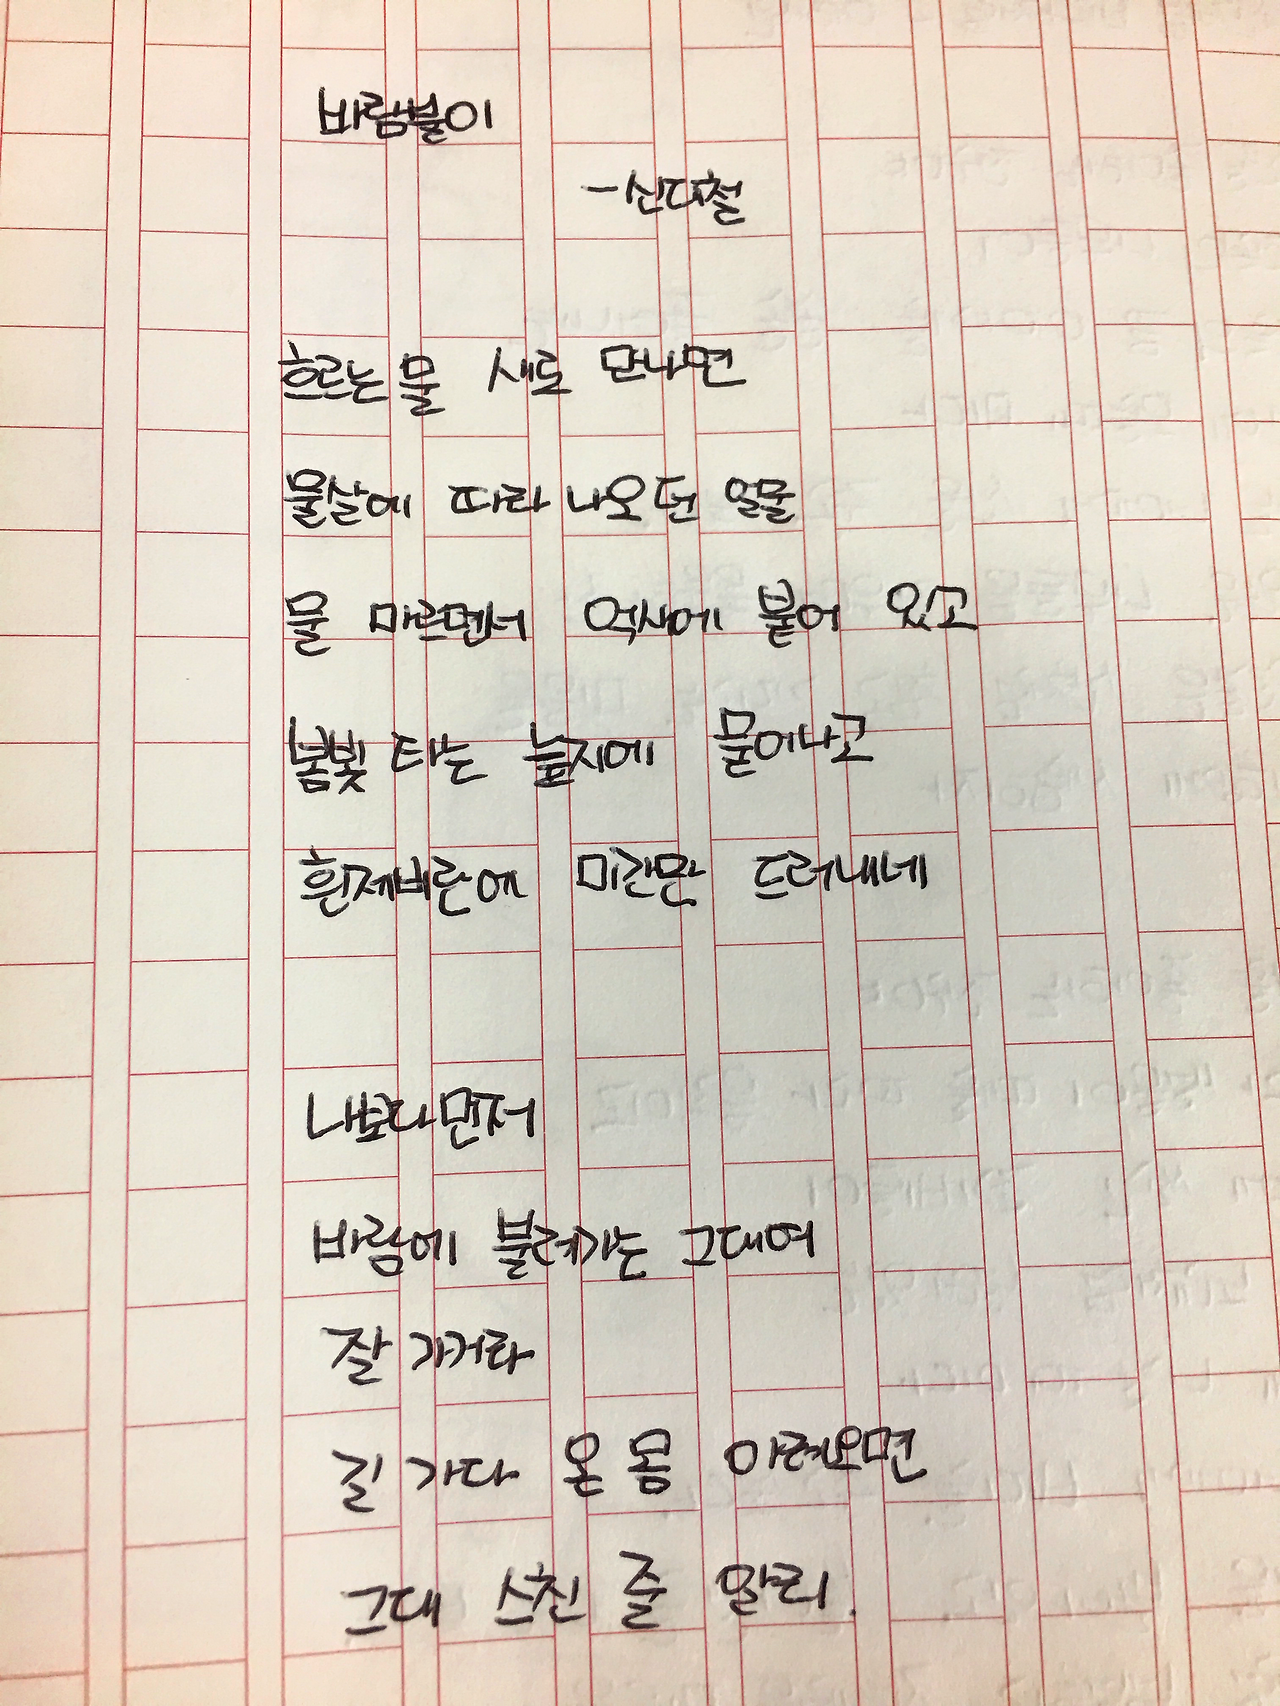 바람불이
-신대철
흐르는 물 새로 만나면
물살에 따라 나오던 얼물
물 마르면서 억새에 붙어 있고
봄빛 타는 늪지에 묻어나고
흰제비란에 미간만 드러내네
나보다 먼저
바람에 불려가는 그대여
잘 가거라
길 가다 온 몸 아려오면
그대 스친 줄 알리.